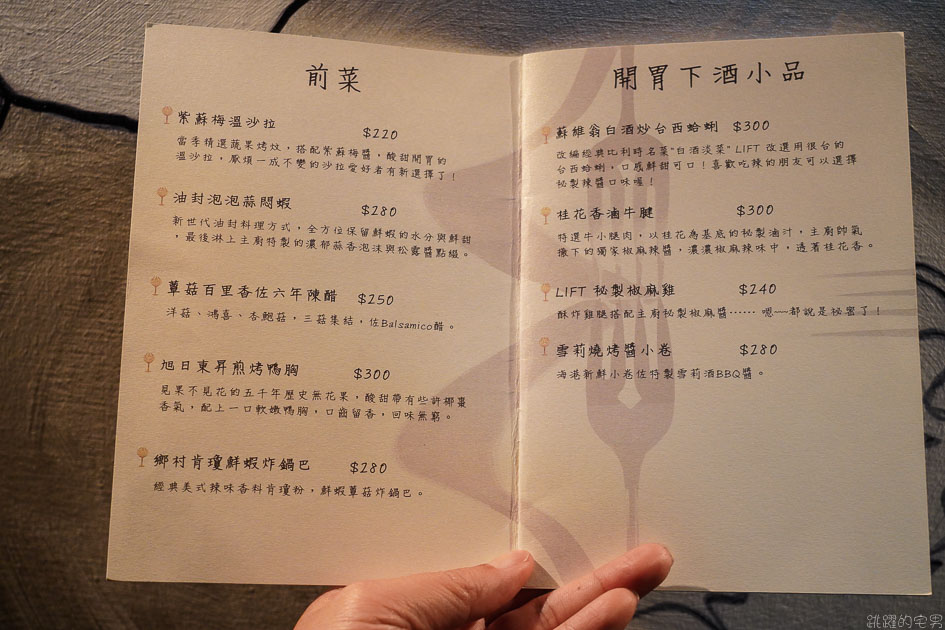 前菜
紫蘇梅溫沙拉 $220
當季精選蔬果烤炆，搭配紫蘇梅醬，酸甜開胃的
溫沙拉，厭煩一成不變的沙拉愛好者有新選擇了！
油封泡泡蒜悶蝦 $280
新世代油封料理方式，全方位保留鮮蝦的水分與鮮甜
，最後淋上主廚特製的濃郁蒜香泡沫與松露醬點綴。
蕈菇百里香佐六年陳醋 $250
洋菇、鴻喜、杏鮑菇，三菇集結，佐Balsamico醋。
旭日東昇煎烤鴨胸 $300
見果不見花的五千年歷史無花果，酸甜帶有些許椰棗
香氣，配上一口軟嫩鴨胸，口齒留香，回味無窮。
鄉村肯瓊鮮蝦炸鍋巴 $280
經典美式辣味香料肯瓊粉，鮮蝦蕈菇炸鍋巴。
開胃下酒小品
蘇維翁白酒炒台西蛤蜊 $300
改編經典比利時名菜"白酒淡菜" LIFT 改選用很台的
台西蛤蜊，口感鮮甜可口！喜歡吃辣的朋友可以選擇
秘製辣醬口味喔！
桂花香滷牛腱 $300
特選牛小腿肉，以桂花為基底的秘製滷汁，主廚帥氣
撒下的獨家椒麻辣醬，濃濃椒麻辣味中，透著桂花香。
LIFT 秘製椒麻雞 $240
酥炸雞腿搭配主廚秘製椒麻醬⋯⋯ 嗯~~都說是祕密了！
雪莉燒烤醬小卷 $280
海港新鮮小卷佐特製雪莉酒BBQ醬。
跳躍的宅男